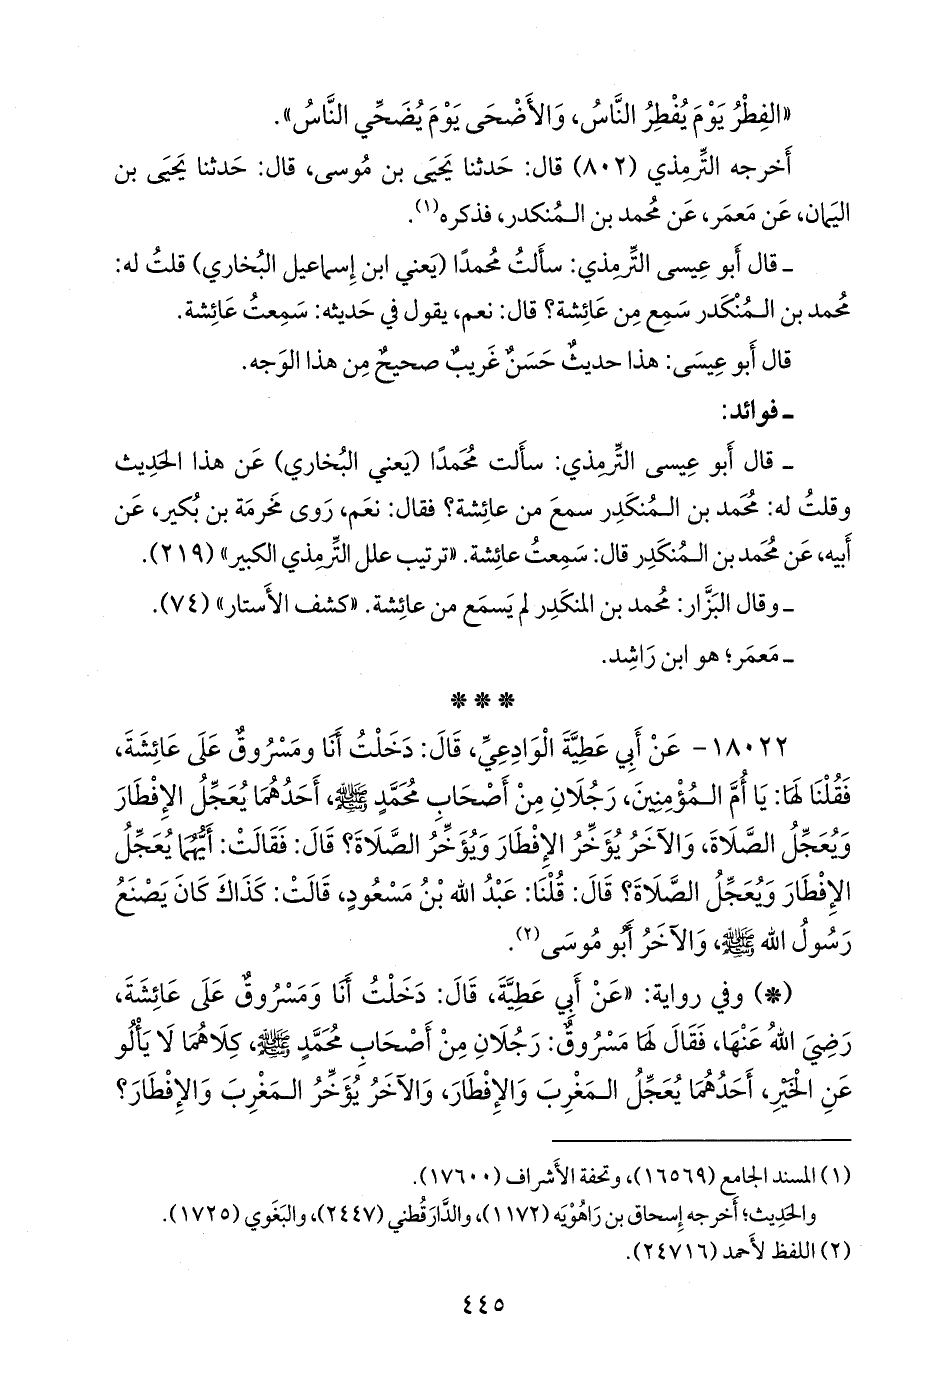 «الفِطْرُ يَوْمَ يُفْطِرُ النَّاسُ، وَالأَضْحَى يَوْمَ يُضَحِّي النَّاسُ».
أَخرجه التِّرمِذي (٨٠٢) قال: حَدثنا يَحيَى بن مُوسى، قال: حَدثنا يَحيَى بن
اليَمان، عَن مَعمَر، عَن مُحمد بن الـمُنكدر، فذكره(١).
ـ قال أَبو عِيسى التِّرمِذي: سأَلتُ مُحمدًا (يَعني ابن إِسماعيل البُخاري) قلتُ له:
مُحمد بن الـمُنْكَدر سَمِع مِن عَائِشة؟ قال: نعم، يقول في حَديثه: سَمِعتُ عَائِشة.
قال أَبو عِيسَى: هذا حديثٌ حَسَنٌ غَريبٌ صحيحٌ مِن هذا الوَجه.
ـ فوائد:
ـ قال أَبو عيسى التِّرمِذي: سأَلت مُحَمدًا (يَعني البُخاري) عَن هذا الحَدِيث
وقلتُ له: مُحَمد بن الـمُنكَدِر سمعَ من عائِشة؟ فقال: نعَم، رَوى مَخرمة بن بُكير، عَن
أَبيه، عَن مُحَمد بن الـمُنكَدِر قال: سَمِعتُ عائِشة. «ترتيب علل التِّرمِذي الكبير» (٢١٩).
ـ وقال البَزَّار: مُحمد بن المنكَدِر لم يَسمَع من عائِشة. «كشف الأَستار» (٧٤).
ـ مَعمَر؛ هو ابن رَاشِد.
* * *
١٨٠٢٢- عَنْ أَبِي عَطِيَّةَ الْوَادِعِيِّ، قَالَ: دَخَلْتُ أَنَا ومَسْرُوقٌ عَلَى عَائِشَةَ،
فَقُلْنَا لَهَا: يَا أُمَّ الـمُؤْمِنِينَ، رَجُلَانِ مِنْ أَصْحَابِ مُحَمَّدٍ ﷺ، أَحَدُهُمَا يُعَجِّلُ الإِفْطَارَ
وَيُعَجِّلُ الصَّلَاةَ، وَالآخَرُ يُؤَخِّرُ الإِفْطَارَ وَيُؤَخِّرُ الصَّلَاةَ؟ قَالَ: فَقَالَتْ: أَيُّهُمَا يُعَجِّلُ
الإِفْطَارَ وَيُعَجِّلُ الصَّلَاةَ؟ قَالَ: قُلْنَا: عَبْدُ الله بْنُ مَسْعُودٍ، قَالَتْ: كَذَاكَ كَانَ يَصْنَعُ
رَسُولُ الله ﷺ، وَالآخَرُ أَبُو مُوسَى(٢).
(*) وفي رواية: «عَنْ أَبِي عَطِيَّةَ، قَالَ: دَخَلْتُ أَنَا وَمَسْرُوقٌ عَلَى عَائِشَةَ،
رَضِيَ اللهُ عَنْهَا، فَقَالَ لَهَا مَسْرُوقٌ: رَجُلَانِ مِنْ أَصْحَابِ مُحَمَّدٍ ﷺ، كِلَاهُمَا لَا يَأْلُو
عَنِ الْخَيْرِ، أَحَدُهُمَا يُعَجِّلُ الـمَغْرِبَ وَالإِفْطَارَ، وَالآخَرُ يُؤَخِّرُ الـمَغْرِبَ وَالإِفْطَارَ؟
(١) المسند الجامع (١٦٥٦٩)، وتحفة الأَشراف (١٧٦٠٠).
والحَدِيث؛ أَخرجه إِسحاق بن رَاهُوْيَه (١١٧٢)، والدَّارَقُطني (٢٤٤٧)، والبَغَوي (١٧٢٥).
(٢) اللفظ لأَحمد (٢٤٧١٦).
٤٤٥